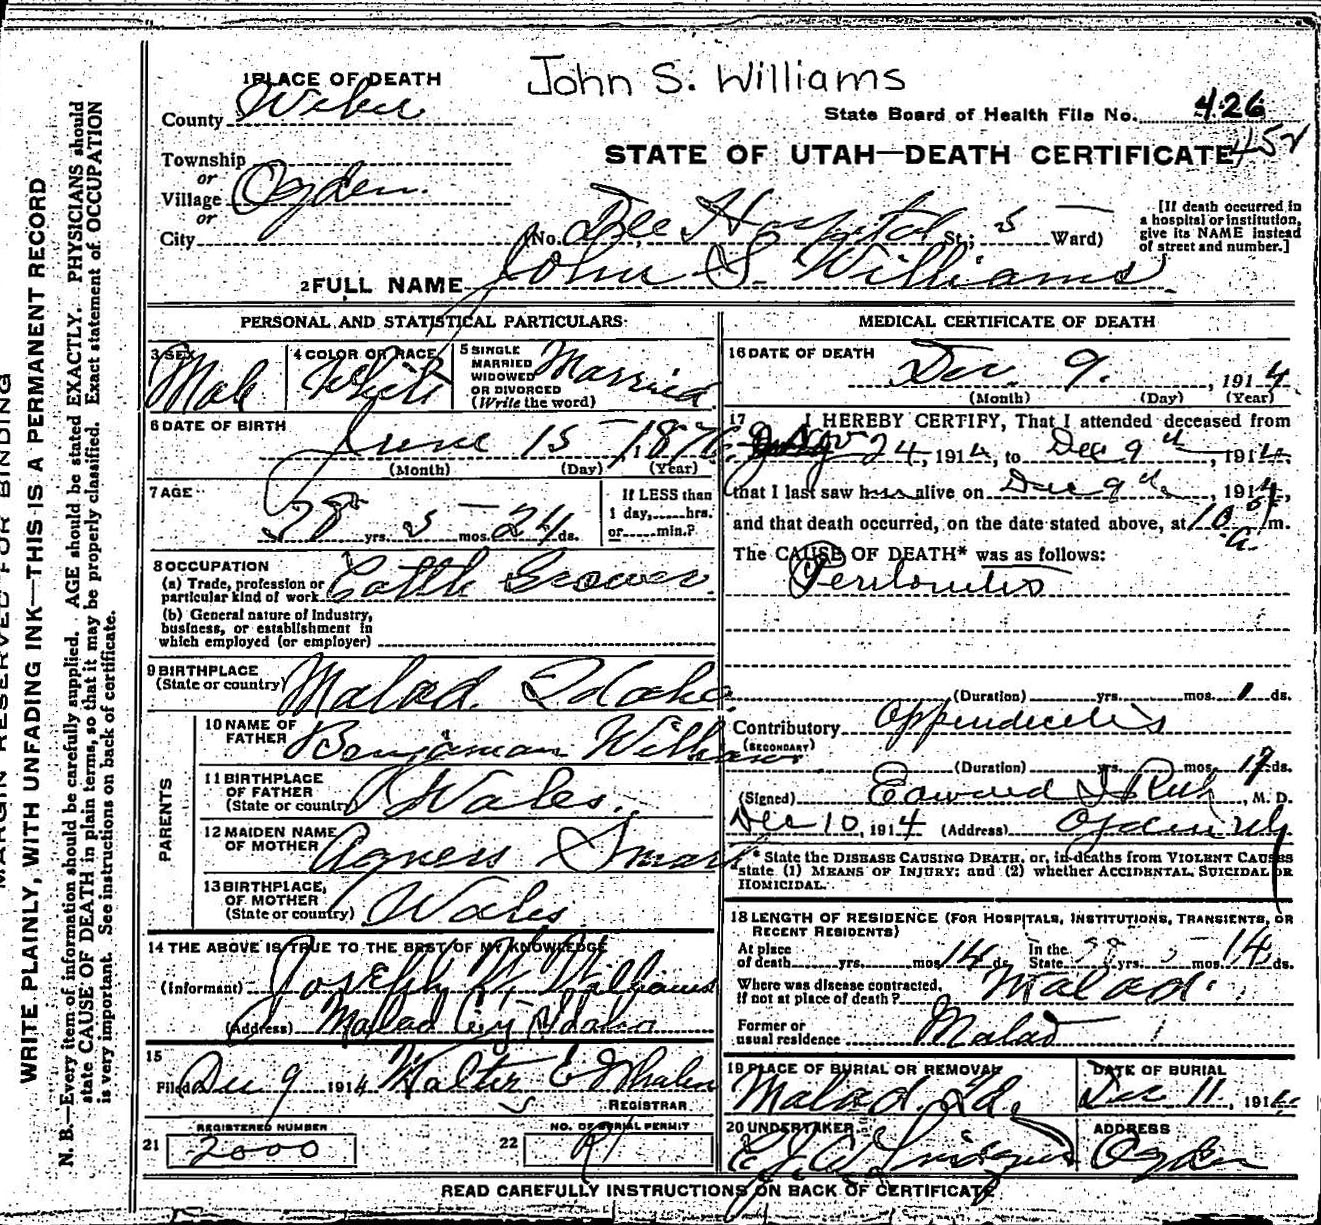 John S. Williams
1 PLACE OF DEATH
County Weber
State Board of Health File No. 426
STATE OF UTAH—DEATH CERTIFICATE 452
Township
or
Village Ogden
or
City (No. Dee Hospital St.; 5 Ward)
[If death occurred in a hospital or institution, give its NAME instead of street and number.]
2 FULL NAME John S. Williams
PERSONAL AND STATISTICAL PARTICULARS
3 SEX Male
4 COLOR OR RACE White
5 SINGLE MARRIED WIDOWED OR DIVORCED (Write the word) Married
6 DATE OF BIRTH June 15 1876
(Month) (Day) (Year)
7 AGE 38 yrs. 5 mos. 24 ds.
If LESS than 1 day, hrs. or min.?
8 OCCUPATION
(a) Trade, profession or particular kind of work Cattle Grower
(b) General nature of Industry, business, or establishment in which employed (or employer)
9 BIRTHPLACE (State or country) Malad. Idaho
PARENTS
10 NAME OF FATHER Benjaman Williams
11 BIRTHPLACE OF FATHER (State or country) Wales.
12 MAIDEN NAME OF MOTHER Agness Smart
13 BIRTHPLACE, OF MOTHER (State or country) Wales
14 THE ABOVE IS TRUE TO THE BEST OF MY KNOWLEDGE
(Informant) Joseph W. Williams
(Address) Malad City Idaho
15
Filed Dec 9 1914 Walter E Whalen
REGISTRAR
REGISTERED NUMBER
21 2000
NO. OF BURIAL PERMIT
22
MEDICAL CERTIFICATE OF DEATH
16 DATE OF DEATH Dec. 9. , 1914
(Month) (Day) (Year)
17 I HEREBY CERTIFY, That I attended deceased from
Nov 24, 1914, to Dec 9th, 1914,
that I last saw him alive on Dec 9th, 1914,
and that death occurred, on the date stated above, at 10 a. m.
The CAUSE OF DEATH* was as follows:
Peritonitis
(Duration) yrs. mos. 1 ds.
Contributory Appendicitis
(SECONDARY)
(Duration) yrs. mos. 17 ds.
(Signed) Edward I Rich, M. D.
Dec 10, 1914 (Address) Ogden Ut
* State the DISEASE CAUSING DEATH, or, in deaths from VIOLENT CAUSES
state (1) MEANS OF INJURY; and (2) whether ACCIDENTAL, SUICIDAL OR
HOMICIDAL.
18 LENGTH OF RESIDENCE (FOR HOSPITALS, INSTITUTIONS, TRANSIENTS, OR
RECENT RESIDENTS)
At place of death yrs. mos. 14 ds. In the State 38 yrs. 5 mos. 14 ds.
Where was disease contracted, if not at place of death? Malad.
Former or usual residence Malad
19 PLACE OF BURIAL OR REMOVAL Malad. Id.
DATE OF BURIAL Dec 11, 1914
20 UNDERTAKER
ADDRESS Ogden
READ CAREFULLY INSTRUCTIONS ON BACK OF CERTIFICATE
MARGIN RESERVED FOR BINDING
WRITE PLAINLY, WITH UNFADING INK—THIS IS A PERMANENT RECORD
N. B.—Every item of information should be carefully supplied. AGE should be stated EXACTLY. PHYSICIANS should
state CAUSE OF DEATH in plain terms, so that it may be properly classified. Exact statement of OCCUPATION
is very important. See instructions on back of certificate.